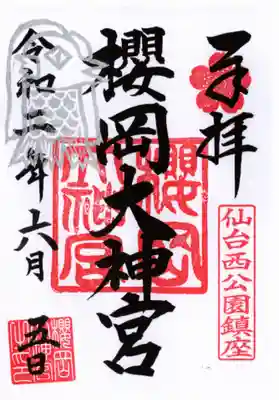 奉拝
仙台西公園鎮座
櫻岡大神宮
令和二年六月 五日
櫻岡大神宮